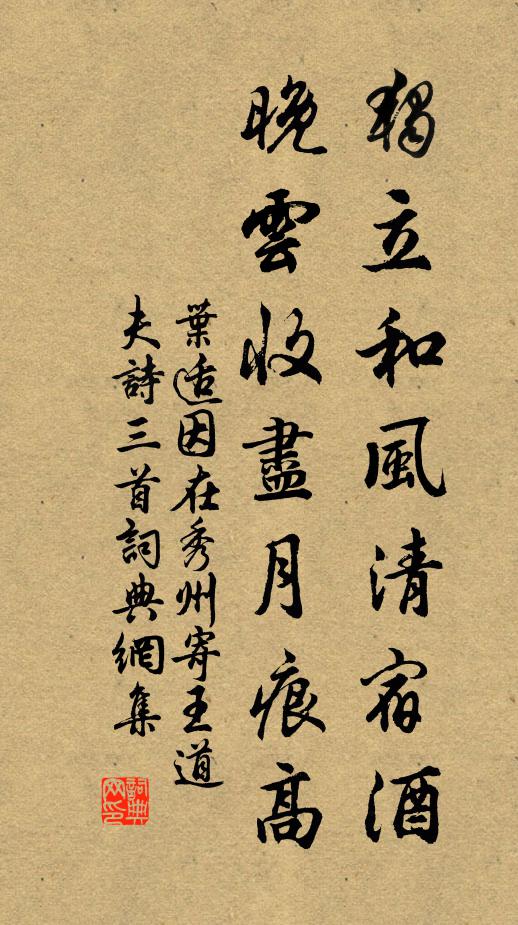 獨立和風清宿酒
晚雲收盡月痕高
葉適因在秀州寄王道
夫詩三首詞典網集
詞典
网印